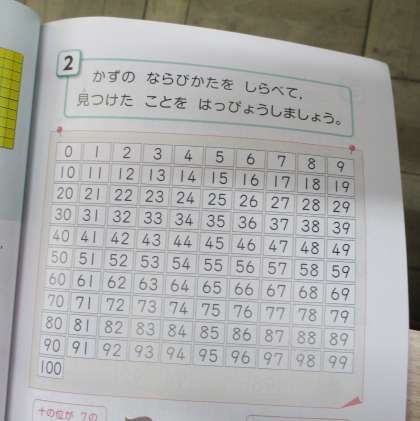 2
かずの ならびかたを しらべて,
見つけた ことを はっぴょうしましょう。
0 1 2 3 4 5 6 7 8 9
10 11 12 13 14 15 16 17 18 19
20 21 22 23 24 25 26 27 28 29
30 31 32 33 34 35 36 37 38 39
40 41 42 43 44 45 46 47 48 49
50 51 52 53 54 55 56 57 58 59
60 61 62 63 64 65 66 67 68 69
70 71 72 73 74 75 76 77 78 79
80 81 82 83 84 85 86 87 88 89
90 91 92 93 94 95 96 97 98 99
100
十の位が 7の